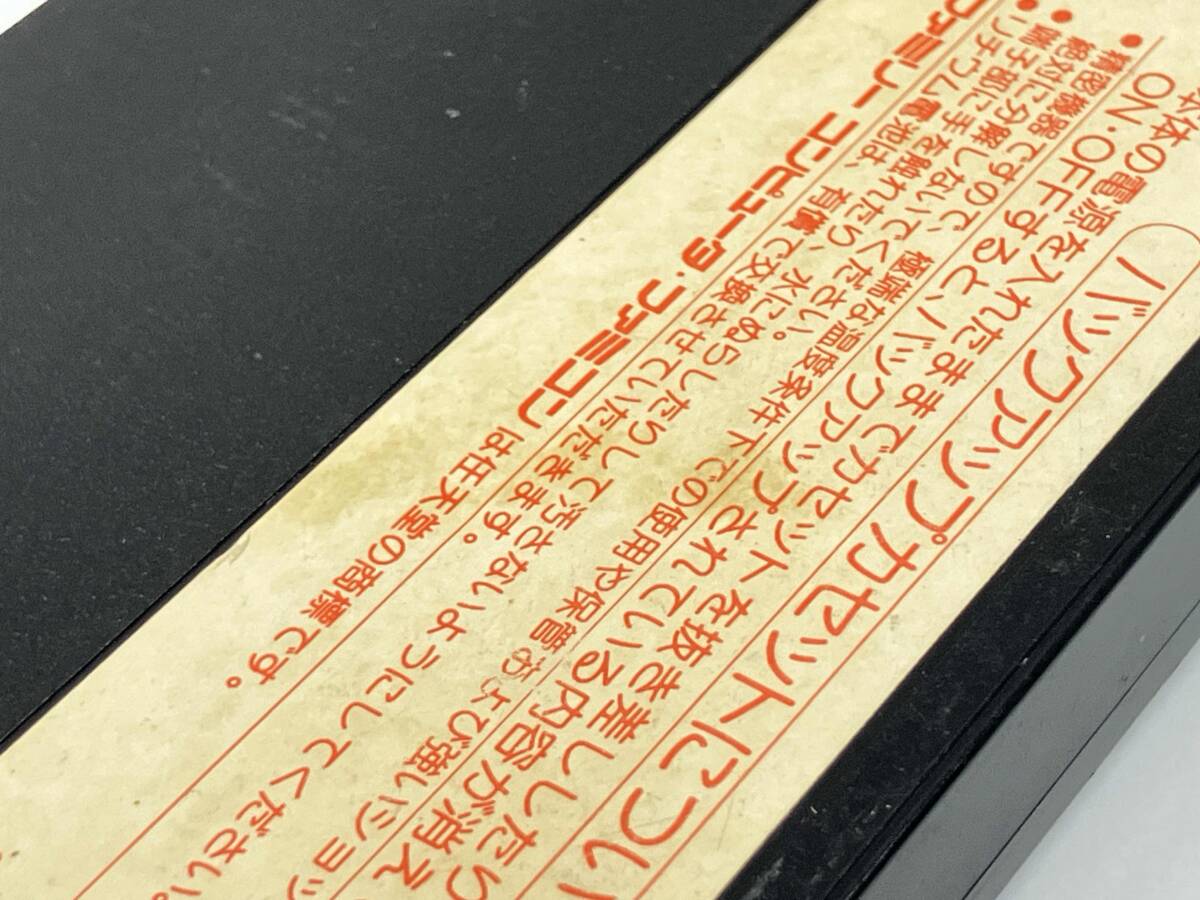 バックアップカセットについ
体の電源を入れたままでカセットを抜き差ししたら
ON・OFFすると、バックアップされている内容が消え
●精密機器ですので、極端な温度条件下での使用や保管および強いショッ
絶対に分解しないでください。
●端子部に手を触れたら、水にぬらしたらして汚さないようにしてください。
●リチウム電池は、有償で交換させていただきます。
ファミリーコンピュータ・ファミコンは任天堂の商標です。